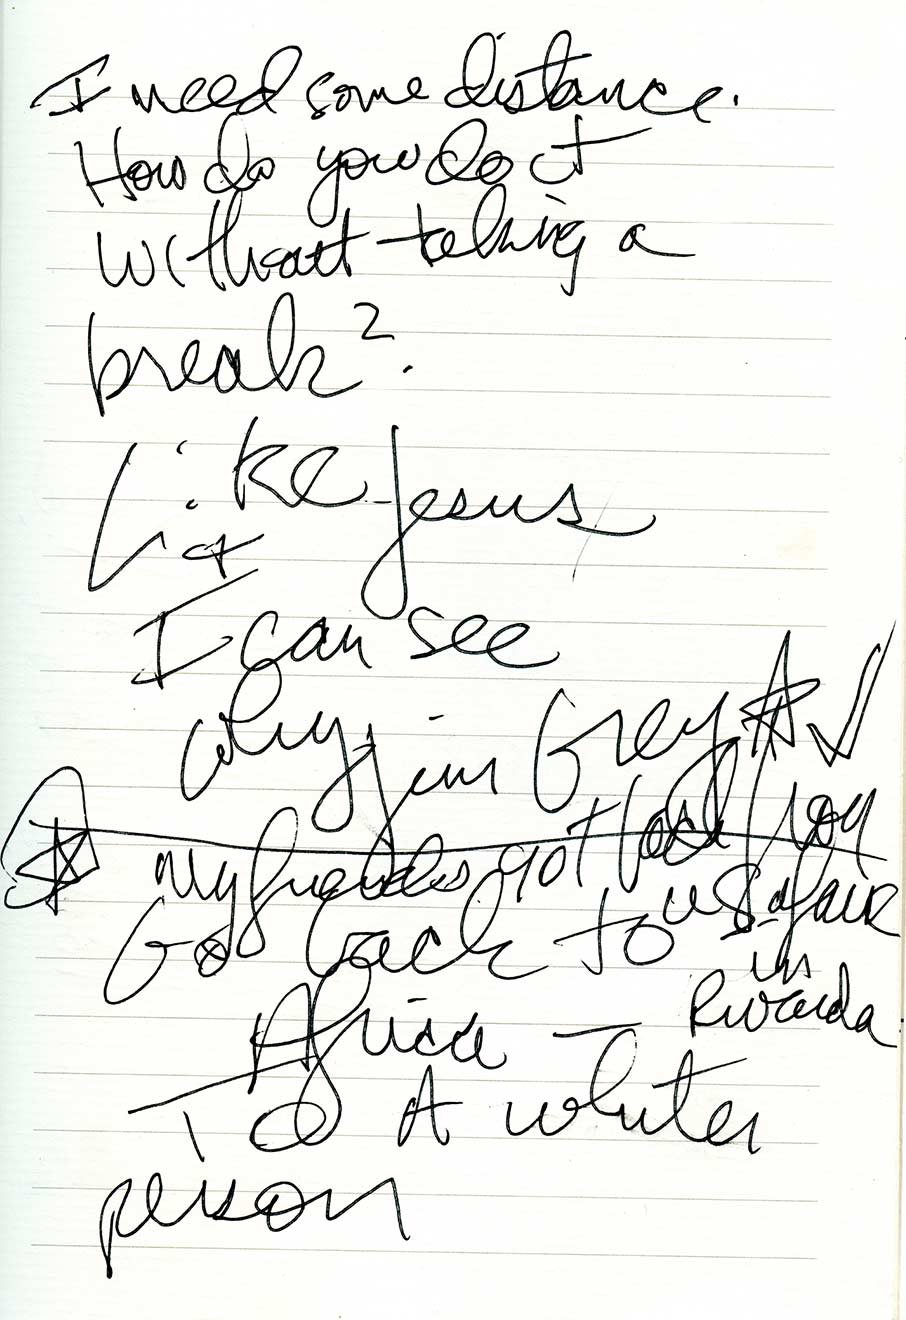 I need some distance.
How do you do it
without taking a
break?
Like Jesus
I can see
why Jim Grey
my friends got back from
Go back to US afair
in
Africa — Rwanda
To A whiter
person